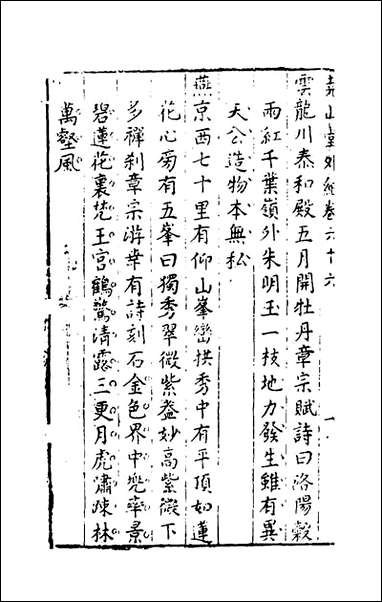 堯山堂外紀卷六十六
雲龍川泰和殿五月開牡丹章宗賦詩曰洛陽穀
雨紅千葉嶺外朱明玉一枝地力發生雖有異
天公造物本無私
燕京西七十里有仰山峯巒拱秀中有平頂如蓮
花心旁有五峯曰獨秀翠微紫蓋妙高紫微下
多禪刹章宗游幸有詩刻石金色界中兜率景
碧蓮花裏梵王宮鶴驚清露三更月虎嘯疎林
萬壑風